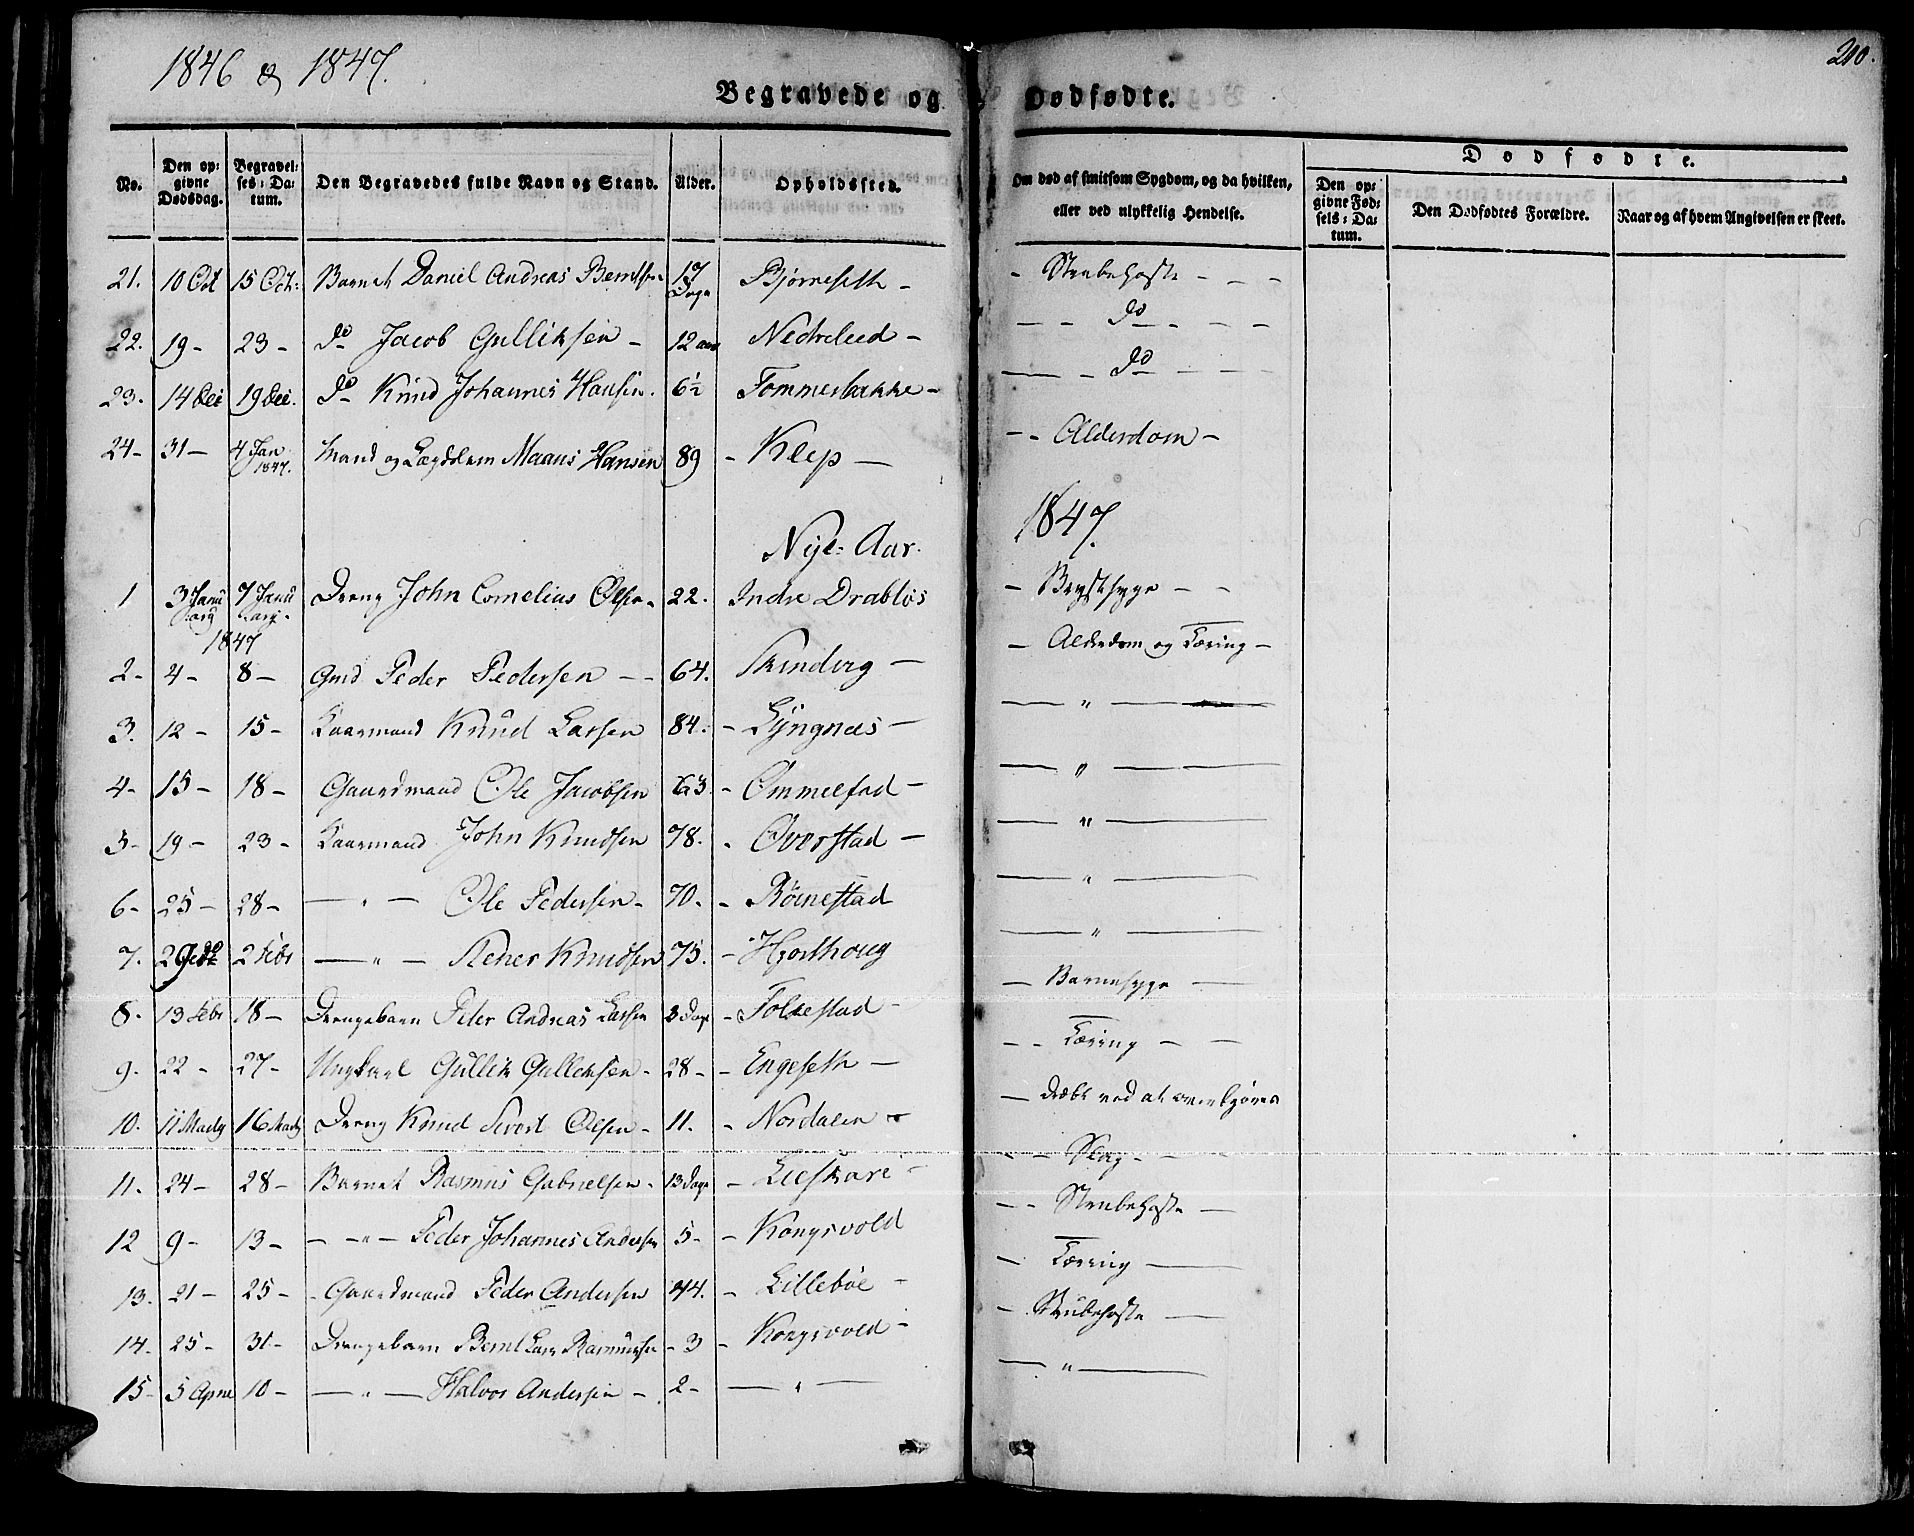 1846 & 1847.
210.
Begravede og Dødfødte.
No.
Den opgivne Dødsdag.
Begravelses-Datum.
Den Begravedes fulde Navn og Stand.
Alder.
Opholdssted.
Om død af smitsom Sygdom, og da hvilken, eller ved ulykkelig Hendelse.
Dødfødte.
Den opgivne Fødsels-Datum.
Den Dødfødtes Forældre.
Naar og af hvem Angivelsen er skeet.
21. 10 Oct 15 Oct: Barnet Daniel Andreas Berntsen 17 Dage Bjørneseth - - Strubehoste - - -
22. 19 - 23 - do Jacob Gulliksen - 12 aar Nedreleed - - - do - - -
23. 14 Dec 19 Dec. do Knud Johannes Hansen. 6½ Tommesbakke - - - do - - -
24 - 31 - 4 Jan 1847. Mand og Lægdslem Maans Hansen 89 - Klep - - - Alderdom -
Nye- Aar. 1847.
1 3 Januarg 1847 7 Januarg. Dreng John Cornelius Olsen 22. Indre Drabløs - Brystsyge - -
2 - 4 - 8 - Gmd Peder Pedersen - - 64. Skindvig - - Alderdom og Tæring -
3. 12 - 15 - Kaarmand Knud Larsen 84. - Lyngnes - - " -
4 - 15 - 18 - Gaardmand Ole Jacobsen 63. - Ommelfad - - " -
5 - 19 - 23 - Kaarmand John Knudsen 78. - Overstad - - " -
6 - 25 - 28 - - " - Ole Pedersen - 70. - Rönestad - " -
7. 29 do 2 Febr - " - Knudsen 75. - Hjorthoug - " -
8. 13 Febr 18 - Drengebarn Peter Andreas Larsen 8 Dage - Folkestad - - Barnesyge -
9. 22 - 27 - Ungkarl Gullik Gulleksen - 28 - - Engeseth - - - Tæring - -
10. 11 Martz 16 Martz Dreng Knud Sivert Olsen - 11. - Nordalen - - dræbt ved at overkjøres
11. 24 - 28 - Barnet Rasmus Gabrielsen - 13 Dage - Lieskare - - - Slag - -
12 9 - 13 - - " - Peder Johannes Andersen 5 - - Kongsvold - - Strubehoste -
13. 21 - 25 - - Gaardmand Peder Andersen 44. - Lillebøe - - Tæring -
14. 25 - 31 - Drengebarn Bernt Lars Rasmussen - 3 - Kongsvold - - Strubehoste -
15 - 5 April 10 - - " - Halvor Andersen - 2 - - " - - " -